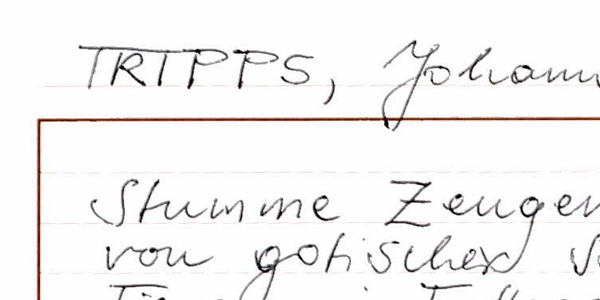 TRIPPS, Johann
Stumme Zeugen
von gotischer